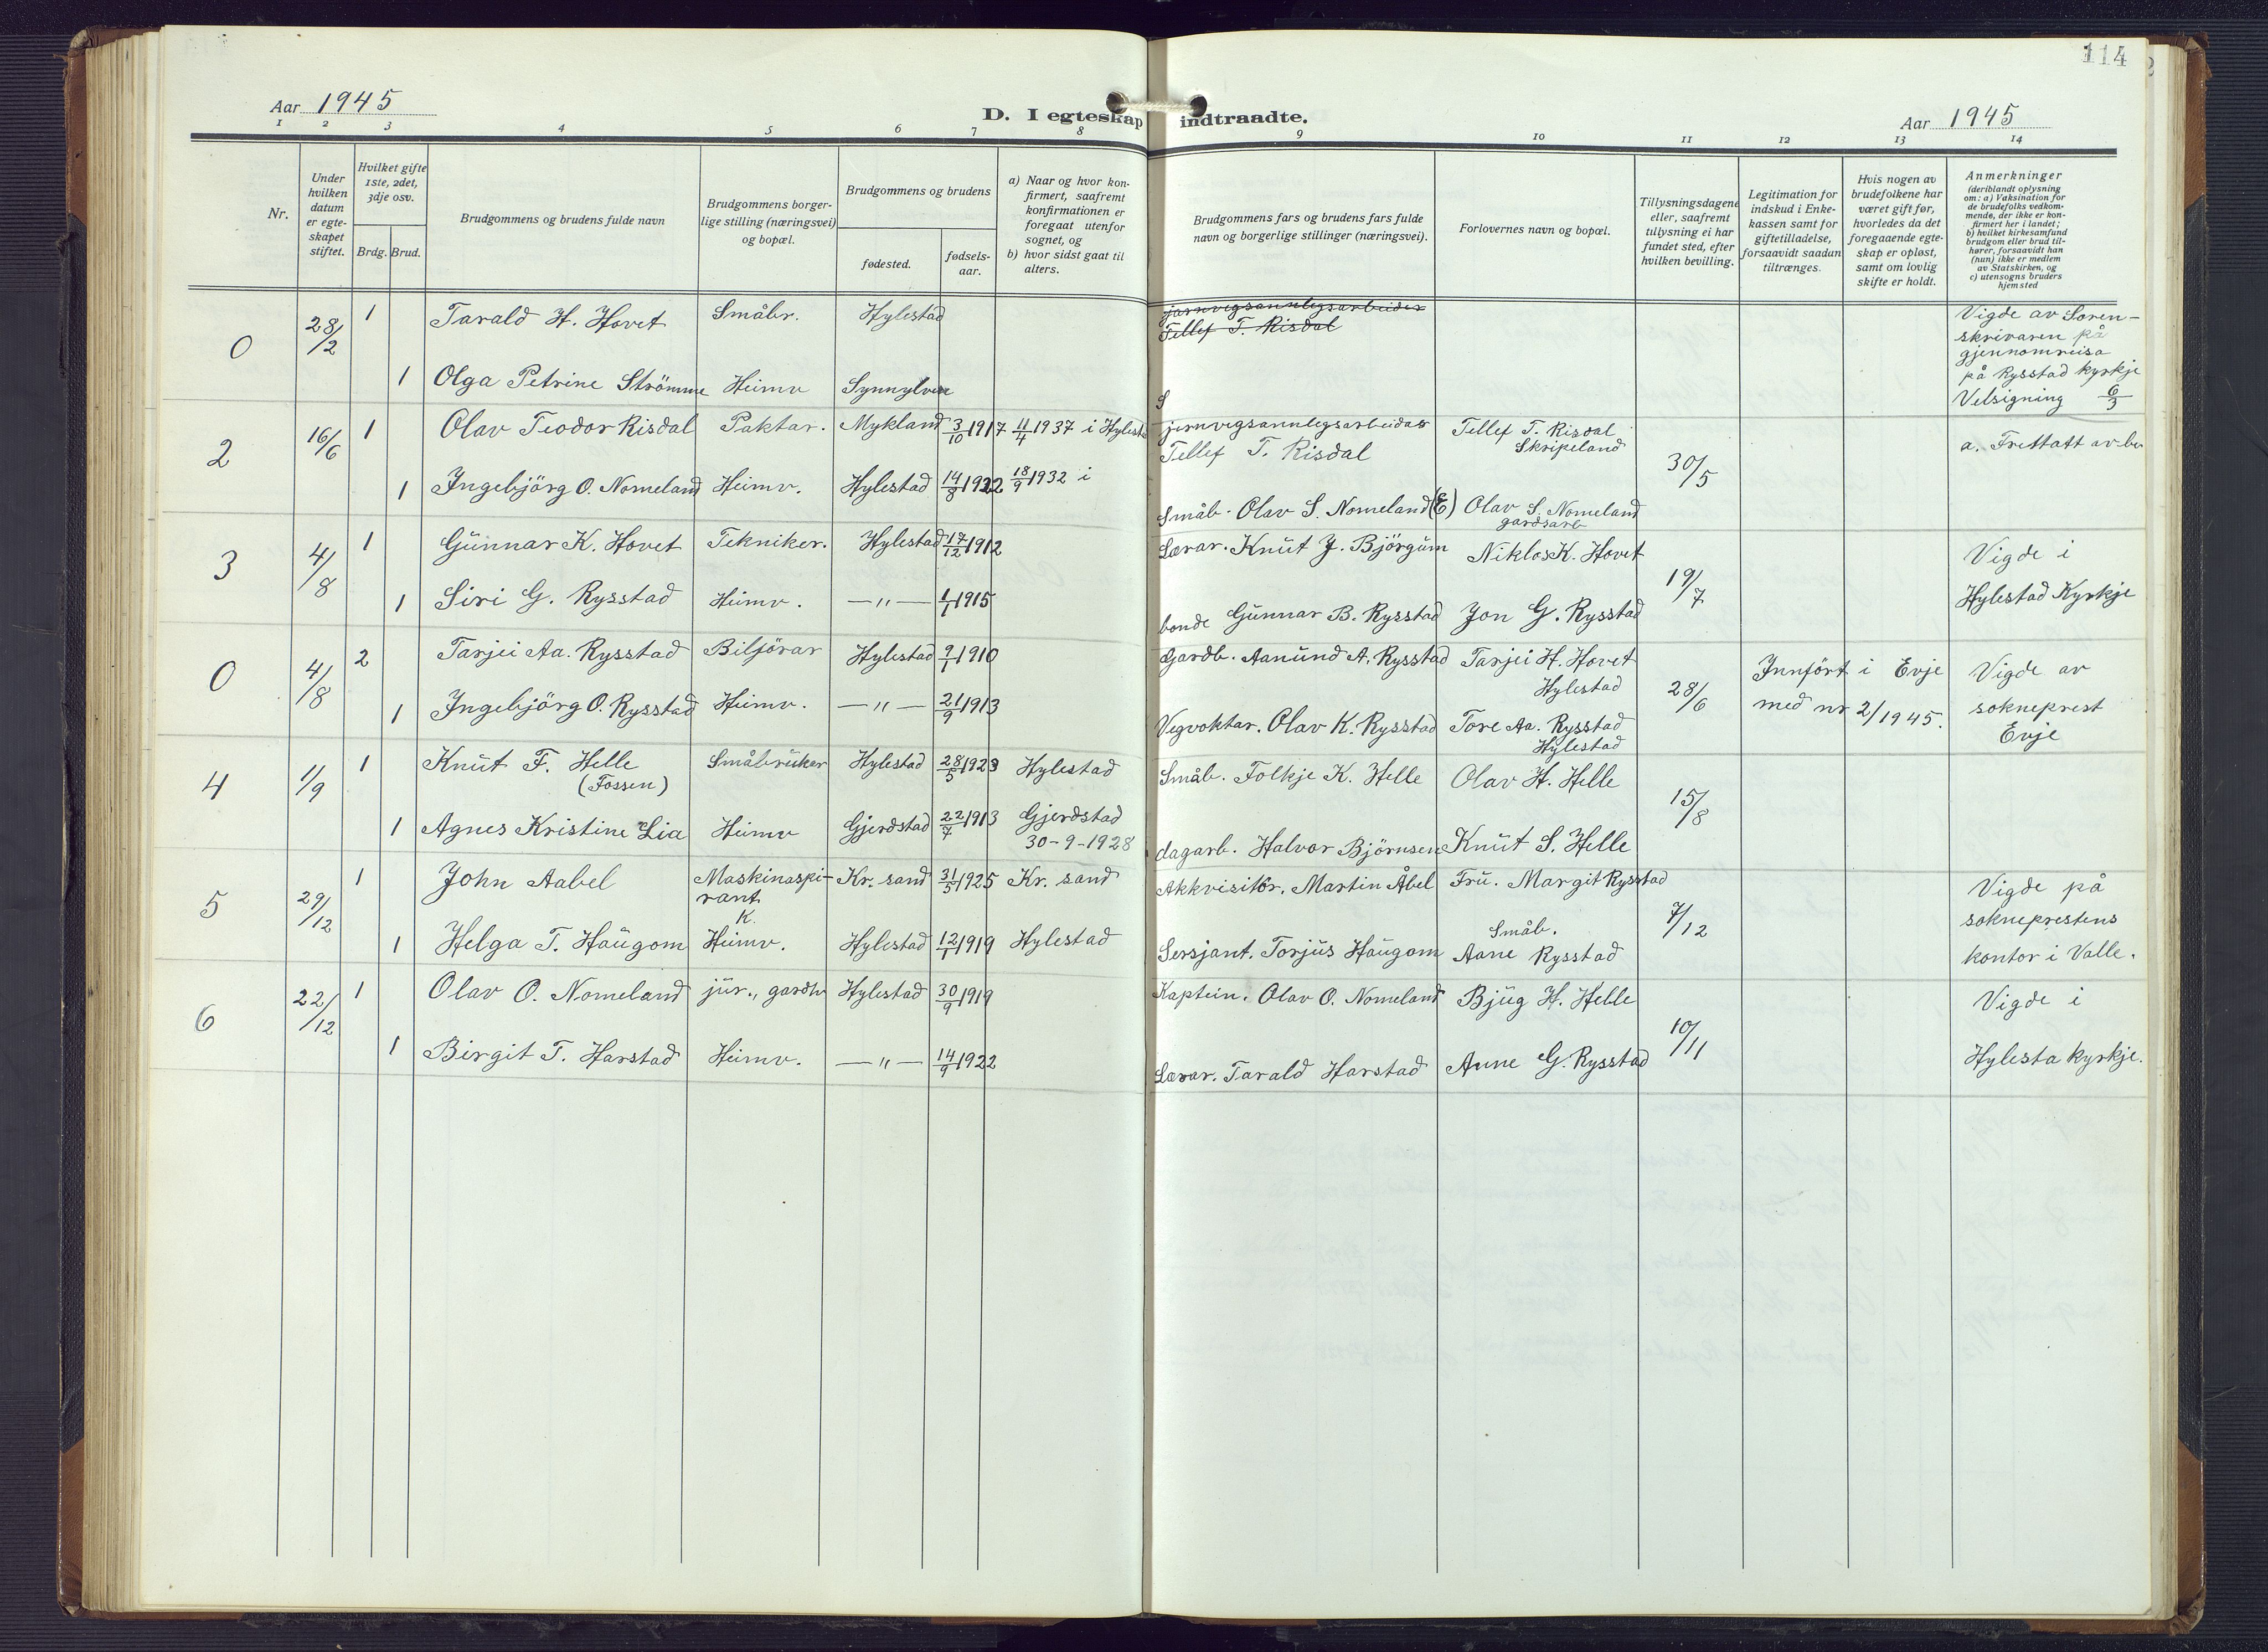 114
Aar 1945
D. I egteskap indtraadte.
Aar 1945
1 2 3 4 5 6 7 8 9 10 11 12 13 14
Nr.
Under hvilken datum er egteskapet stiftet.
Hvilket gifte 1ste, 2det, 3dje osv.
Brdg. Brud.
Brudgommens og brudens fulde navn
Brudgommens borgerlige stilling (næringsvei) og bopæl.
Brudgommens og brudens
fødested.
fødselsaar.
a) Naar og hvor konfirmert, saafremt konfirmationen er foregaat utenfor sognet, og
b) hvor sidst gaat til alters.
Brudgommens fars og brudens fars fulde navn og borgerlige stillinger (næringsvei).
Forlovernes navn og bopæl.
Tillysningsdagene eller, saafremt tillysning ei har fundet sted, efter hvilken bevilling.
Legitimation for indskud i Enkekassen samt for giftetilladelse, forsaavidt saadan tiltrænges.
Hvis nogen av brudefolkene har været gift før, hvorledes da det foregaaende egteskap er opløst, samt om lovlig skifte er holdt.
Anmerkninger
(deriblandt oplysning om: a) Vaksination for de brudefolks vedkommende, der ikke er konfirmert her i landet; b) hvilket kirkesamfund brudgom eller brud tilhører, forsaavidt han (hun) ikke er medlem av Statskirken, og c) utensogns bruders hjemsted
0 28/2 1 Tarald H. Hovet Småbr. Hylestad
jarnvegsannlegsarbeider
Tellef T. Risdal
Vigde av Soren-
skrivaren på
gjennomreisa
på Rysstad kyrkje
Velsigning 6/3
1 Olga Petrine Strömme Heimv Synnylven
S
2 16/6 1 Olav Teodor Risdal Paktar. Mykland 3/10 1917 11/4 1937 i Hylest
jernvegsannlegsarbeidar
Tellef T. Risdal
Tellef T. Risdal
Skripeland
30/5
a. Frettatt av
1 Ingebjörg O. Nomeland Heimv. Hylestad 14/8 1922 18/9 1932 i
Småb. Olav S. Nomeland (E) Olav S. Nomeland
gardsarb
3 4/8 1 Gunnar K. Hovet Tekniker. Hylestad 17/12 1912
Lærar. Knut J. Björgum Niklos K. Hovet
19/7
Vigde i
Hylestad Kyrkje
1 Siri G. Rysstad Heimv. —„— 1/1 1915
bonde Gunnar B. Rysstad Jon G. Rysstad
0 4/8 2 Tarjei Aa. Rysstad Biljörar Hylestad 9/1 1910
Gardb. Aanund A. Rysstad Tarjei H. Hovet
Hylestad
28/6
Innfört i Evje
med nr 2/1945.
Vigde av
sokneprest
Evje
1 Ingebjörg O. Rysstad Heimv. —„— 21/9 1913
Vegvoktar. Olav K. Rysstad Tore Aa. Rysstad
Hylestad
4 1/9 1 Knut F. Helle Småbruker Hylestad 28/5 1923 Hylestad
(Fossen)
Småb. Folkje K. Helle Olav H. Helle
15/8
1 Agnes Kristine Lia Heimv Gjerdstad 22/7 1913 Gjerdstad
30-9-1928
dagarb. Halvor Björnsen Knut S. Helle
5 29/12 1 John Aabel Maskinaspi-
rant
K. Kr. sand 31/5 1925 Kr. sand
Akkvisitör. Martin Åbel Fru. Margit Rysstad
7/12
Vigde på
sokneprestens
kontor i Valle.
1 Helga T. Haugom Heimv. Hylestad 12/1 1919 Hylestad
Sersjant. Torjus Haugom Småb.
Aane Rysstad
6 22/12 1 Olav O. Nomeland jur., gardbr Hylestad 30/9 1919
Kaptein. Olav O. Nomeland Bjug H. Helle
10/11
Vigde i
Hylesta kyrkje.
1 Birgit T. Harstad Heimv. —„— 14/9 1922
Lærar. Tarald Harstad Anne G. Rysstad